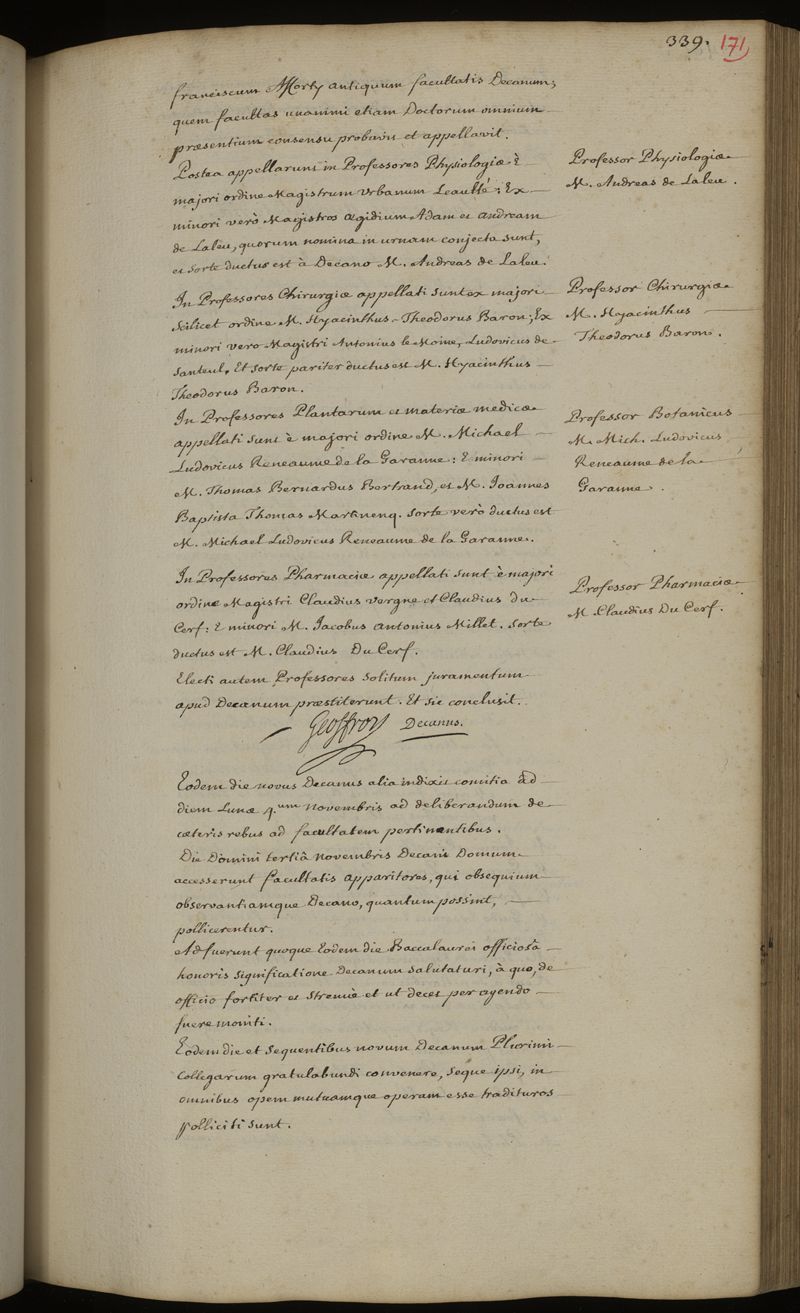 339. 171
franciscum Afforty antiquum facultatis Decanum;
quem facultas unanimi etiam Doctorum omnium
præsentium consensu probavit et appellavit.
Postea appellarunt in Professores Physiologiæ è
majori ordine Magistrum Urbanum Leaulté: Ex
minori verò Magistros Ægidium Adam et andream
de Laleu, quorum nomina in urnam conjecta sunt,
et sorte ductus est à Decano M. Andreas de Laleu.
Professor Physiologiæ
M. Andreas de Laleu.
In Professores Chirurgiæ appellati sunt ex majori
scilicet ordine M. Hyacinthus-Theodorus Baron; Ex
minori vero Magistri Antonius le Moine, Ludovicus de
Santeul. Et sorte pariter ductus est M. Hyacinthus
Theodorus Baron.
Professor Chirurgiæ
M. Hyacinthus
Theodorus Baron.
In Professores Plantarum et materiæ medicæ
appellati sunt è majori ordine M. Michael
Ludovicus Reneaume de la Garanne: E minori
M. Thomas Bernardus Bertrand, et M. Joannes
Baptista Thomas Martinenq. Sorte verò ductus est
M. Michael Ludovicus Reneaume de la Garanne.
Professor Botanicus
M. Mich. Ludovicus
Reneaume de la
Garanne.
In Professores Pharmaciæ appellati sunt è majori
ordine Magistri Claudius Vergne et Claudius du
Cerf: E minori M. Jacobus Antonius Millet. Sorte
ductus est M. Claudius Du Cerf.
Professor Pharmaciæ
M Claudius Du Cerf.
Electi autem Professores solitum juramentum
apud Decanum præstiterunt. Et sic conclusit.
Geoffroy Decanus.
Eodem die novus Decanus alia indixit comitia ad
diem Lunæ 4.um Novembris ad deliberandum de
cæteris rebus ad facultatem pertinentibus.
Die Domini tertiâ Novembris Decani Domum
accesserunt facultatis apparitores, qui obsequium
observantiamque Decano, quantum possint,
pollicerentur.
Adfuerunt quoque Eodem die Baccalaurei officiosâ
honoris significatione Decanum salutaturi, à quo, de
officio fortiter et strenuè et ut decet peragendo
fuere moniti.
Eodem die et sequentibus novum Decanum Plurimi
Collegarum gratulabundi convenere, seque ipsi, in
omnibus opem mutuamque operam esse tradituros
polliciti sunt.